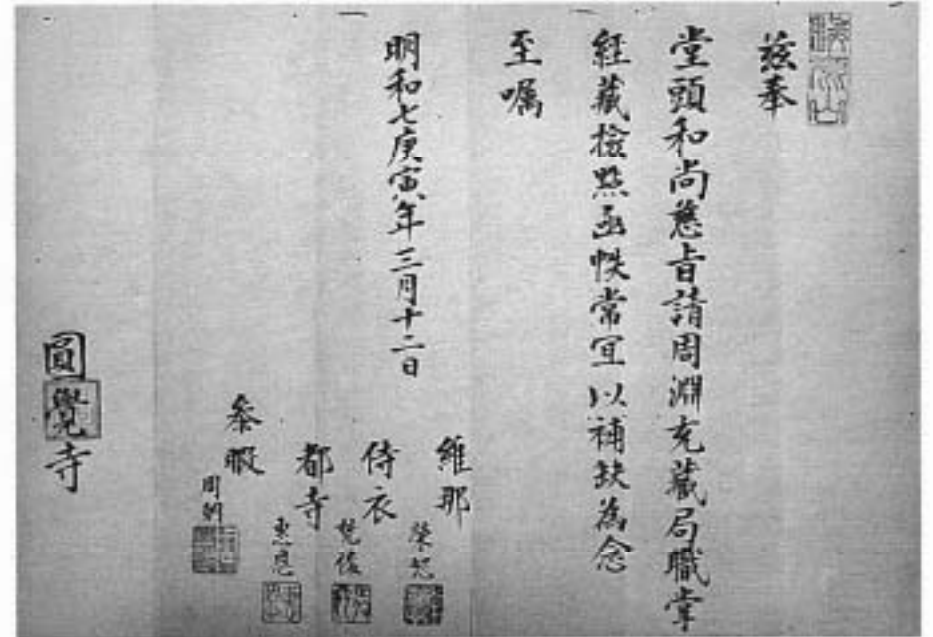 茲奉
堂頭和尚慈旨請周淵充藏局職掌
経藏撿點函帙常宜以補缺為念
至嘱
明和七庚寅年三月十二日
維那
侍衣
都寺
參暇
圓覺寺